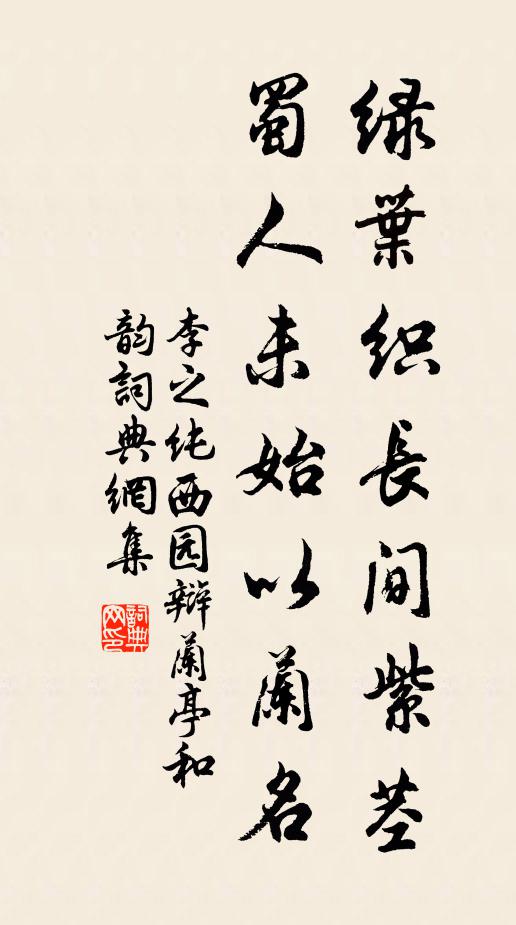 绿葉织長间紫茎
蜀人未始以蘭名
李之纯西园辩蘭亭和
韵詞典網集
詞典网印